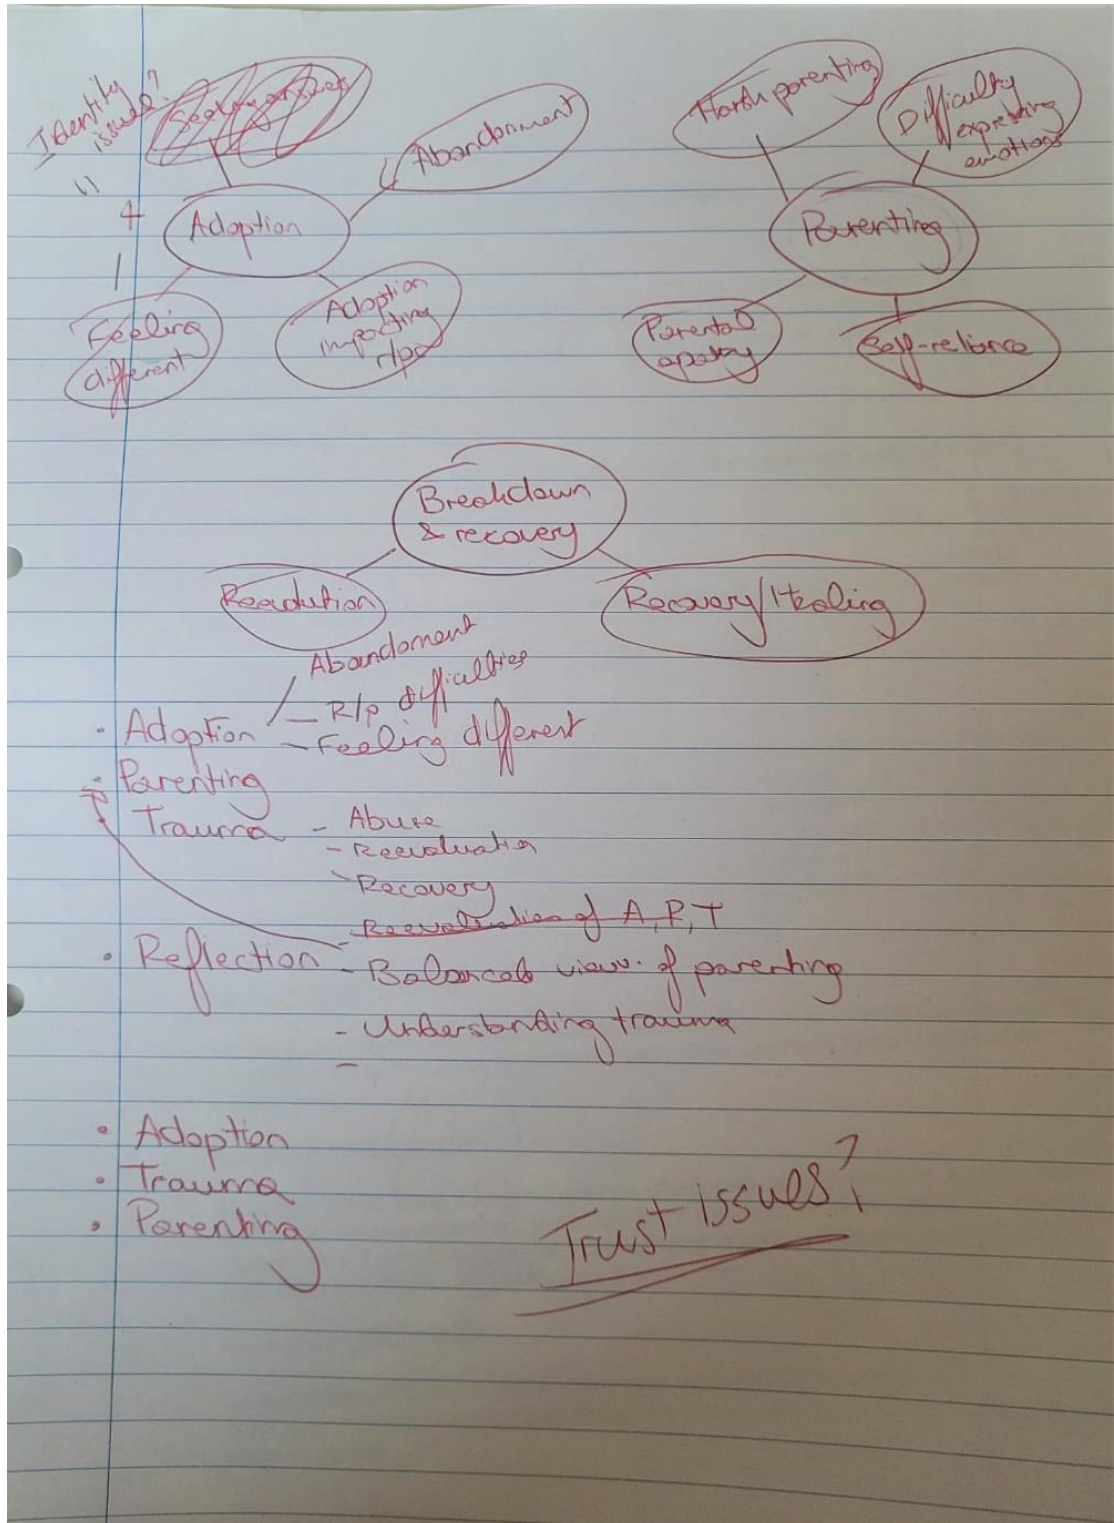 Identity
issues?
Abandonment
Adoption
Feeling
different
Adoption
impacting
r/ps
Harsh parenting
Difficulty
expressing
emotions
Parenting
Parental
apathy
Self-reliance
Breakdown
& recovery
Recovery/Healing
Abandoment
- R/p difficulties
• Adoption - Feeling different
• Parenting
Trauma - Abuse
- Reevaluation
- Recovery
- Reevaluation of A, P, T
• Reflection - Balanced view of parenting
- Understanding trauma
-
• Adoption
• Trauma
• Parenting
Trust issues?